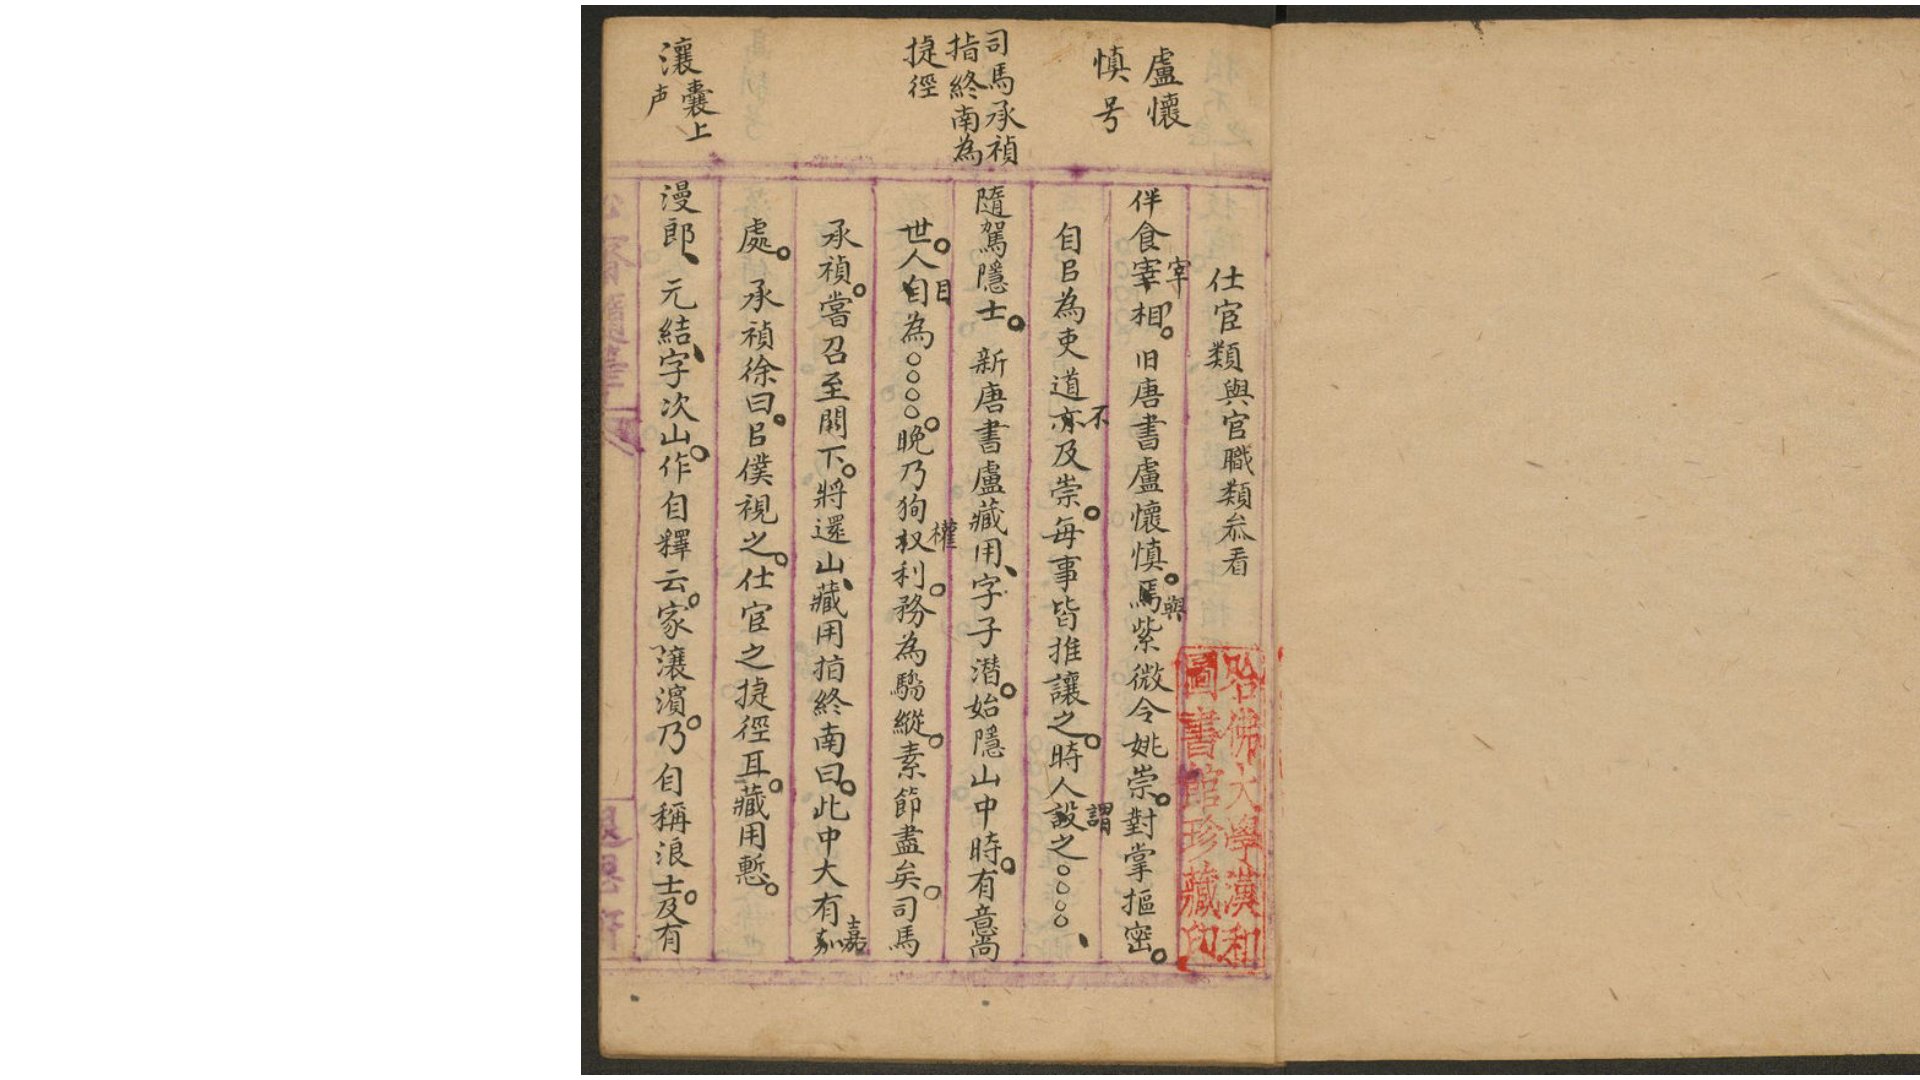 盧懷
慎号
司馬承禎
指終南為
捷徑
瀼囊上
声
仕宦類與官職類叅看
伴食宰宰相。旧唐書盧懷慎。馬與紫微令姚崇。對掌樞密。
自㠯為吏道亦不及崇。每事皆推讓之。時人設謂之○○○○、
隨駕隱士。新唐書盧藏用、字子潛。始隱山中時。有意當
世。人自目為○○○○。晚乃狥权權利。務為驕縱。素節盡矣。司馬
承禎。嘗召至闕下。將還山、藏用指終南曰。此中大有嘉
處。承禎徐曰。㠯僕視之。仕宦之捷徑耳。藏用慙。
漫郎、元結、字次山。作自釋云。家瀼濱。乃自稱浪士。及有
哈佛大學漢和
圖書館珍藏印